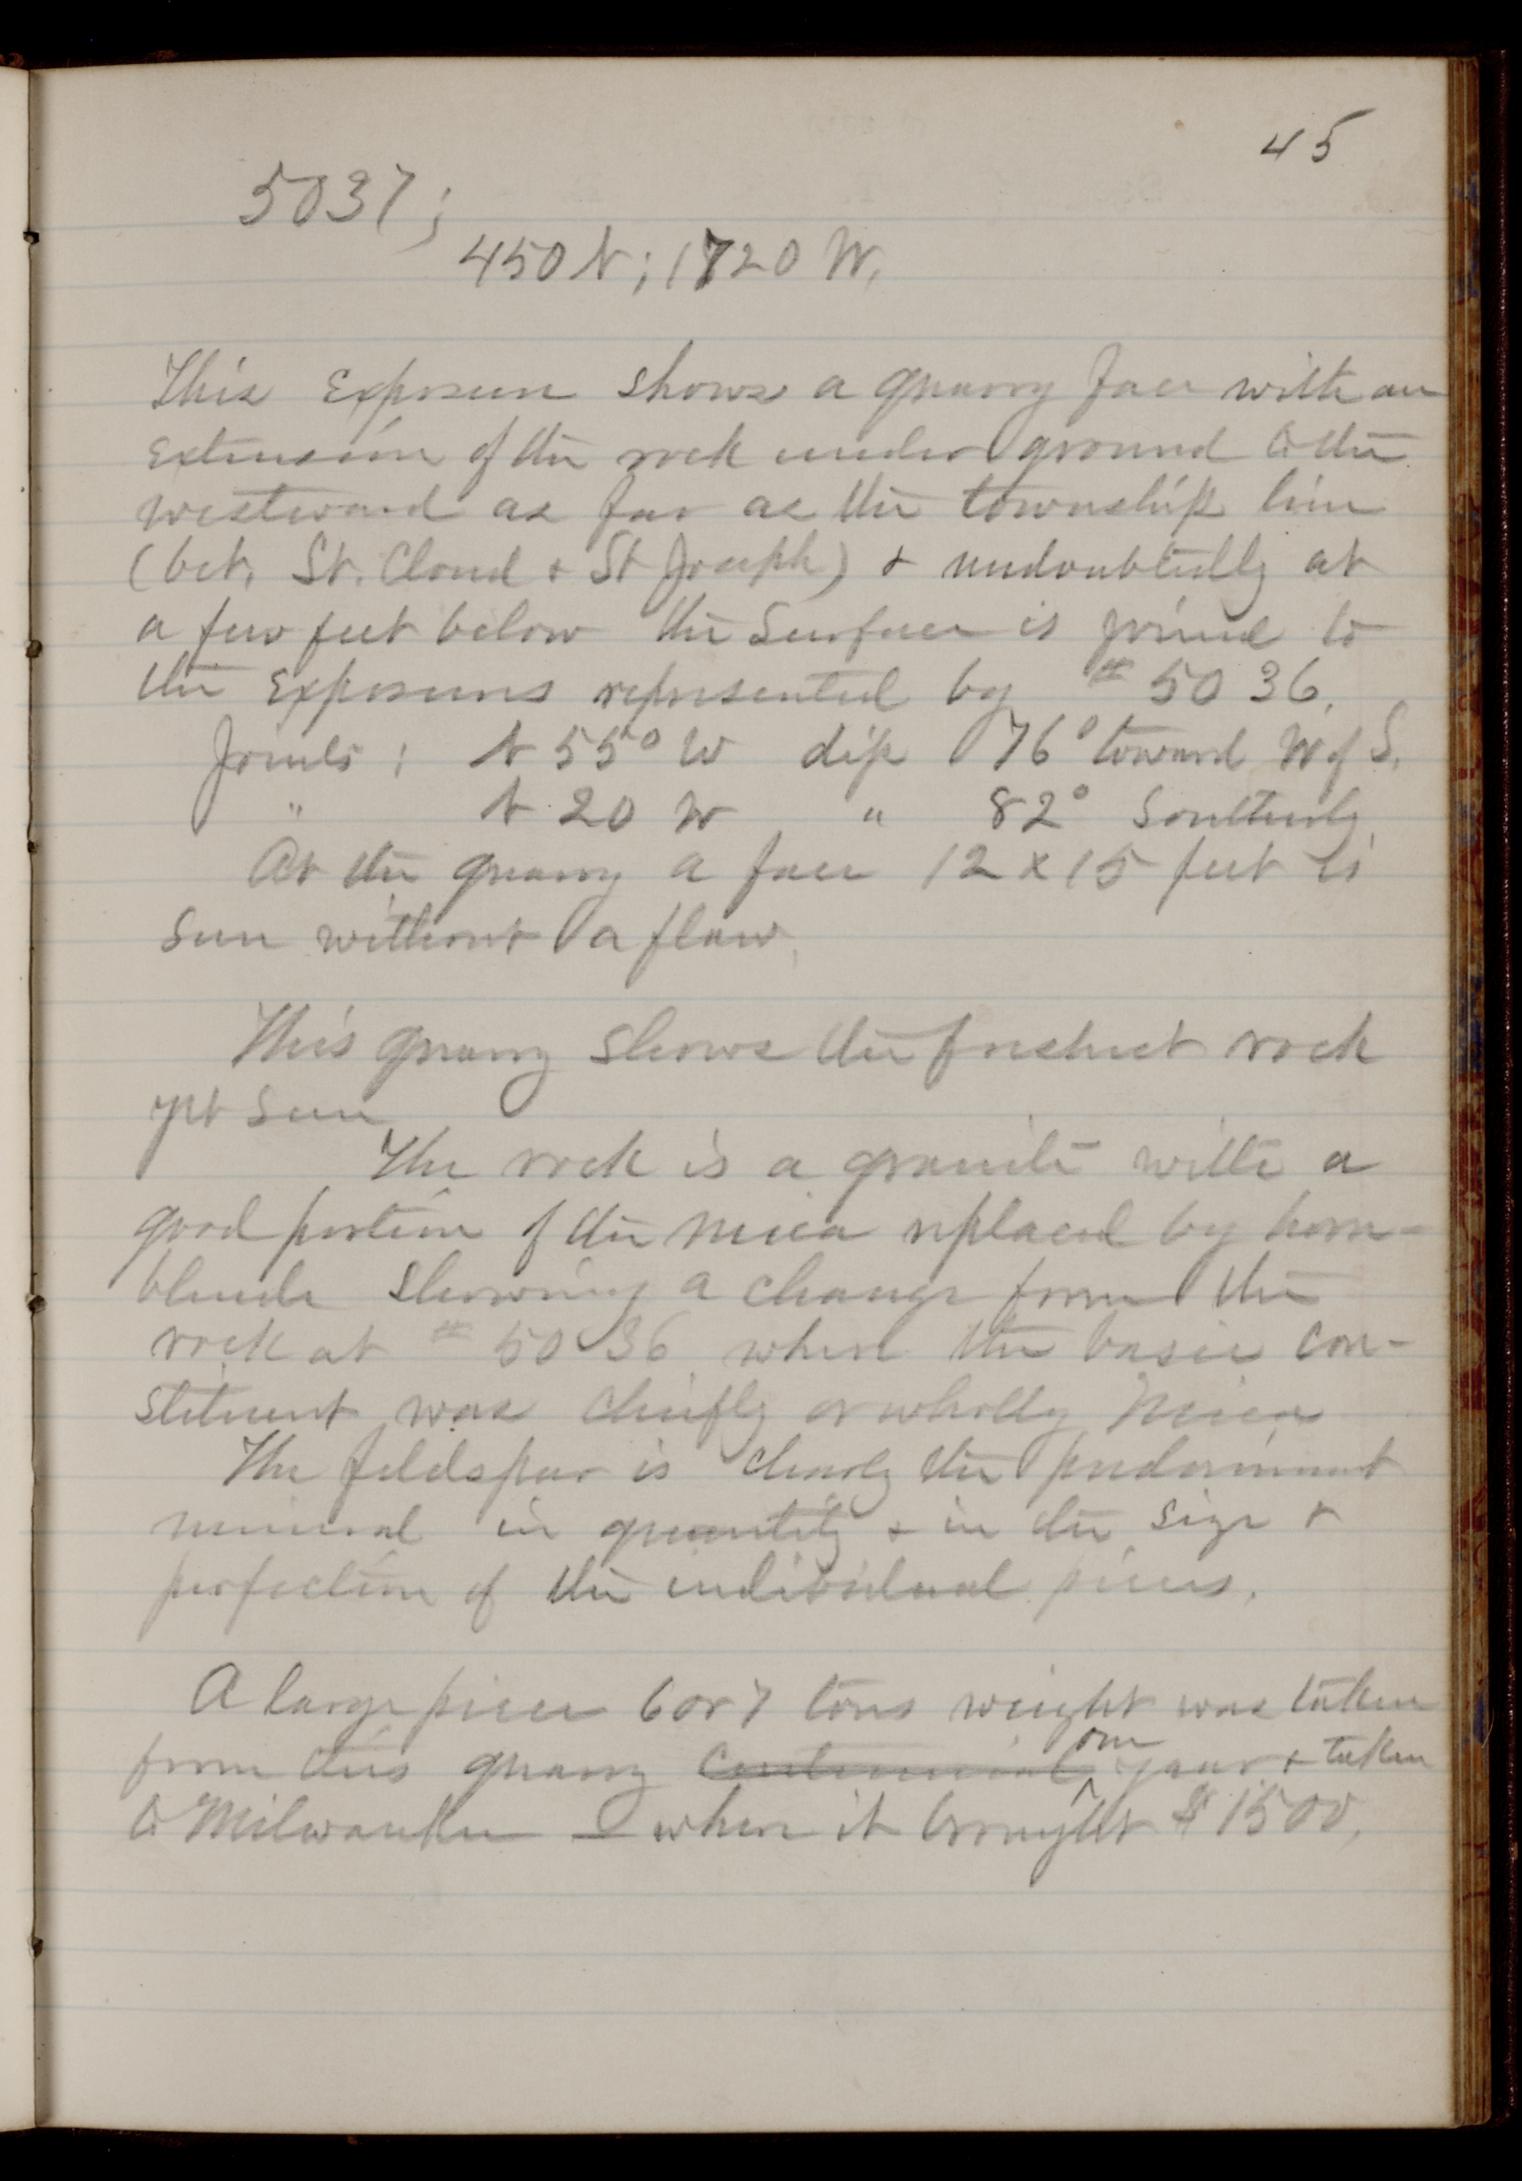 45
5037;
450 N; 1720 W.
This Exposure shows a quarry face with an
extension of the rock under ground to the
westward as far as the township line
(bet. St. Cloud & St Joseph) & undoubtedly at
a few feet below the Surface is joined to
the Exposures represented by # 5036.
Joints; N 55° W dip 76° toward W of S.
" N 20 W " 82° Southerly
At the quarry a face 12 x 15 feet is
seen without a flaw.
This quarry shows the freshest rock
yet seen
The rock is a granite with a
good portion of the mica replaced by horn-
blende showing a change from the
rock at # 5036 where the basic con-
stituent was chiefly or wholly mica
The feldspar is clearly the predominant
mineral in quantity & in the size &
perfection of the individual pieces.
A large piece 6 or 7 tons weight was taken
from this quarry Centennial one year & taken
to Milwaukee – where it brought $1500.